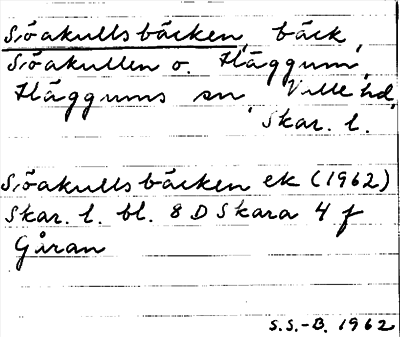 Sjöakullsbäcken, bäck,
Sjöakullen o. Häggum,
Häggums sn, Ville hd,
Skar. l.
Sjöakullsbäcken ek (1962)
Skar. l. bl. 8 D Skara 4 f
Gåran
S.S.-B. 1962